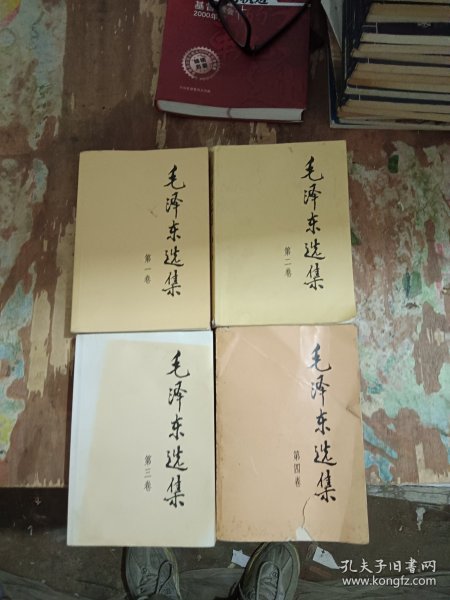 基督
2000年
毛泽东选集
第一卷
毛泽东选集
第二卷
毛泽东选集
第三卷
毛泽东选集
第四卷
孔夫子旧书网
www.kongfz.com